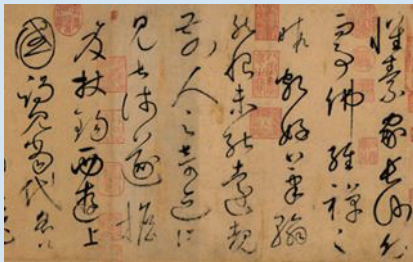 懷素家長沙幼
而事佛經禪之
暇頗好筆翰
然恨未能遠覩
前人之奇迹所
見甚淺遂擔
笈杖錫西遊上
國謁見當代名